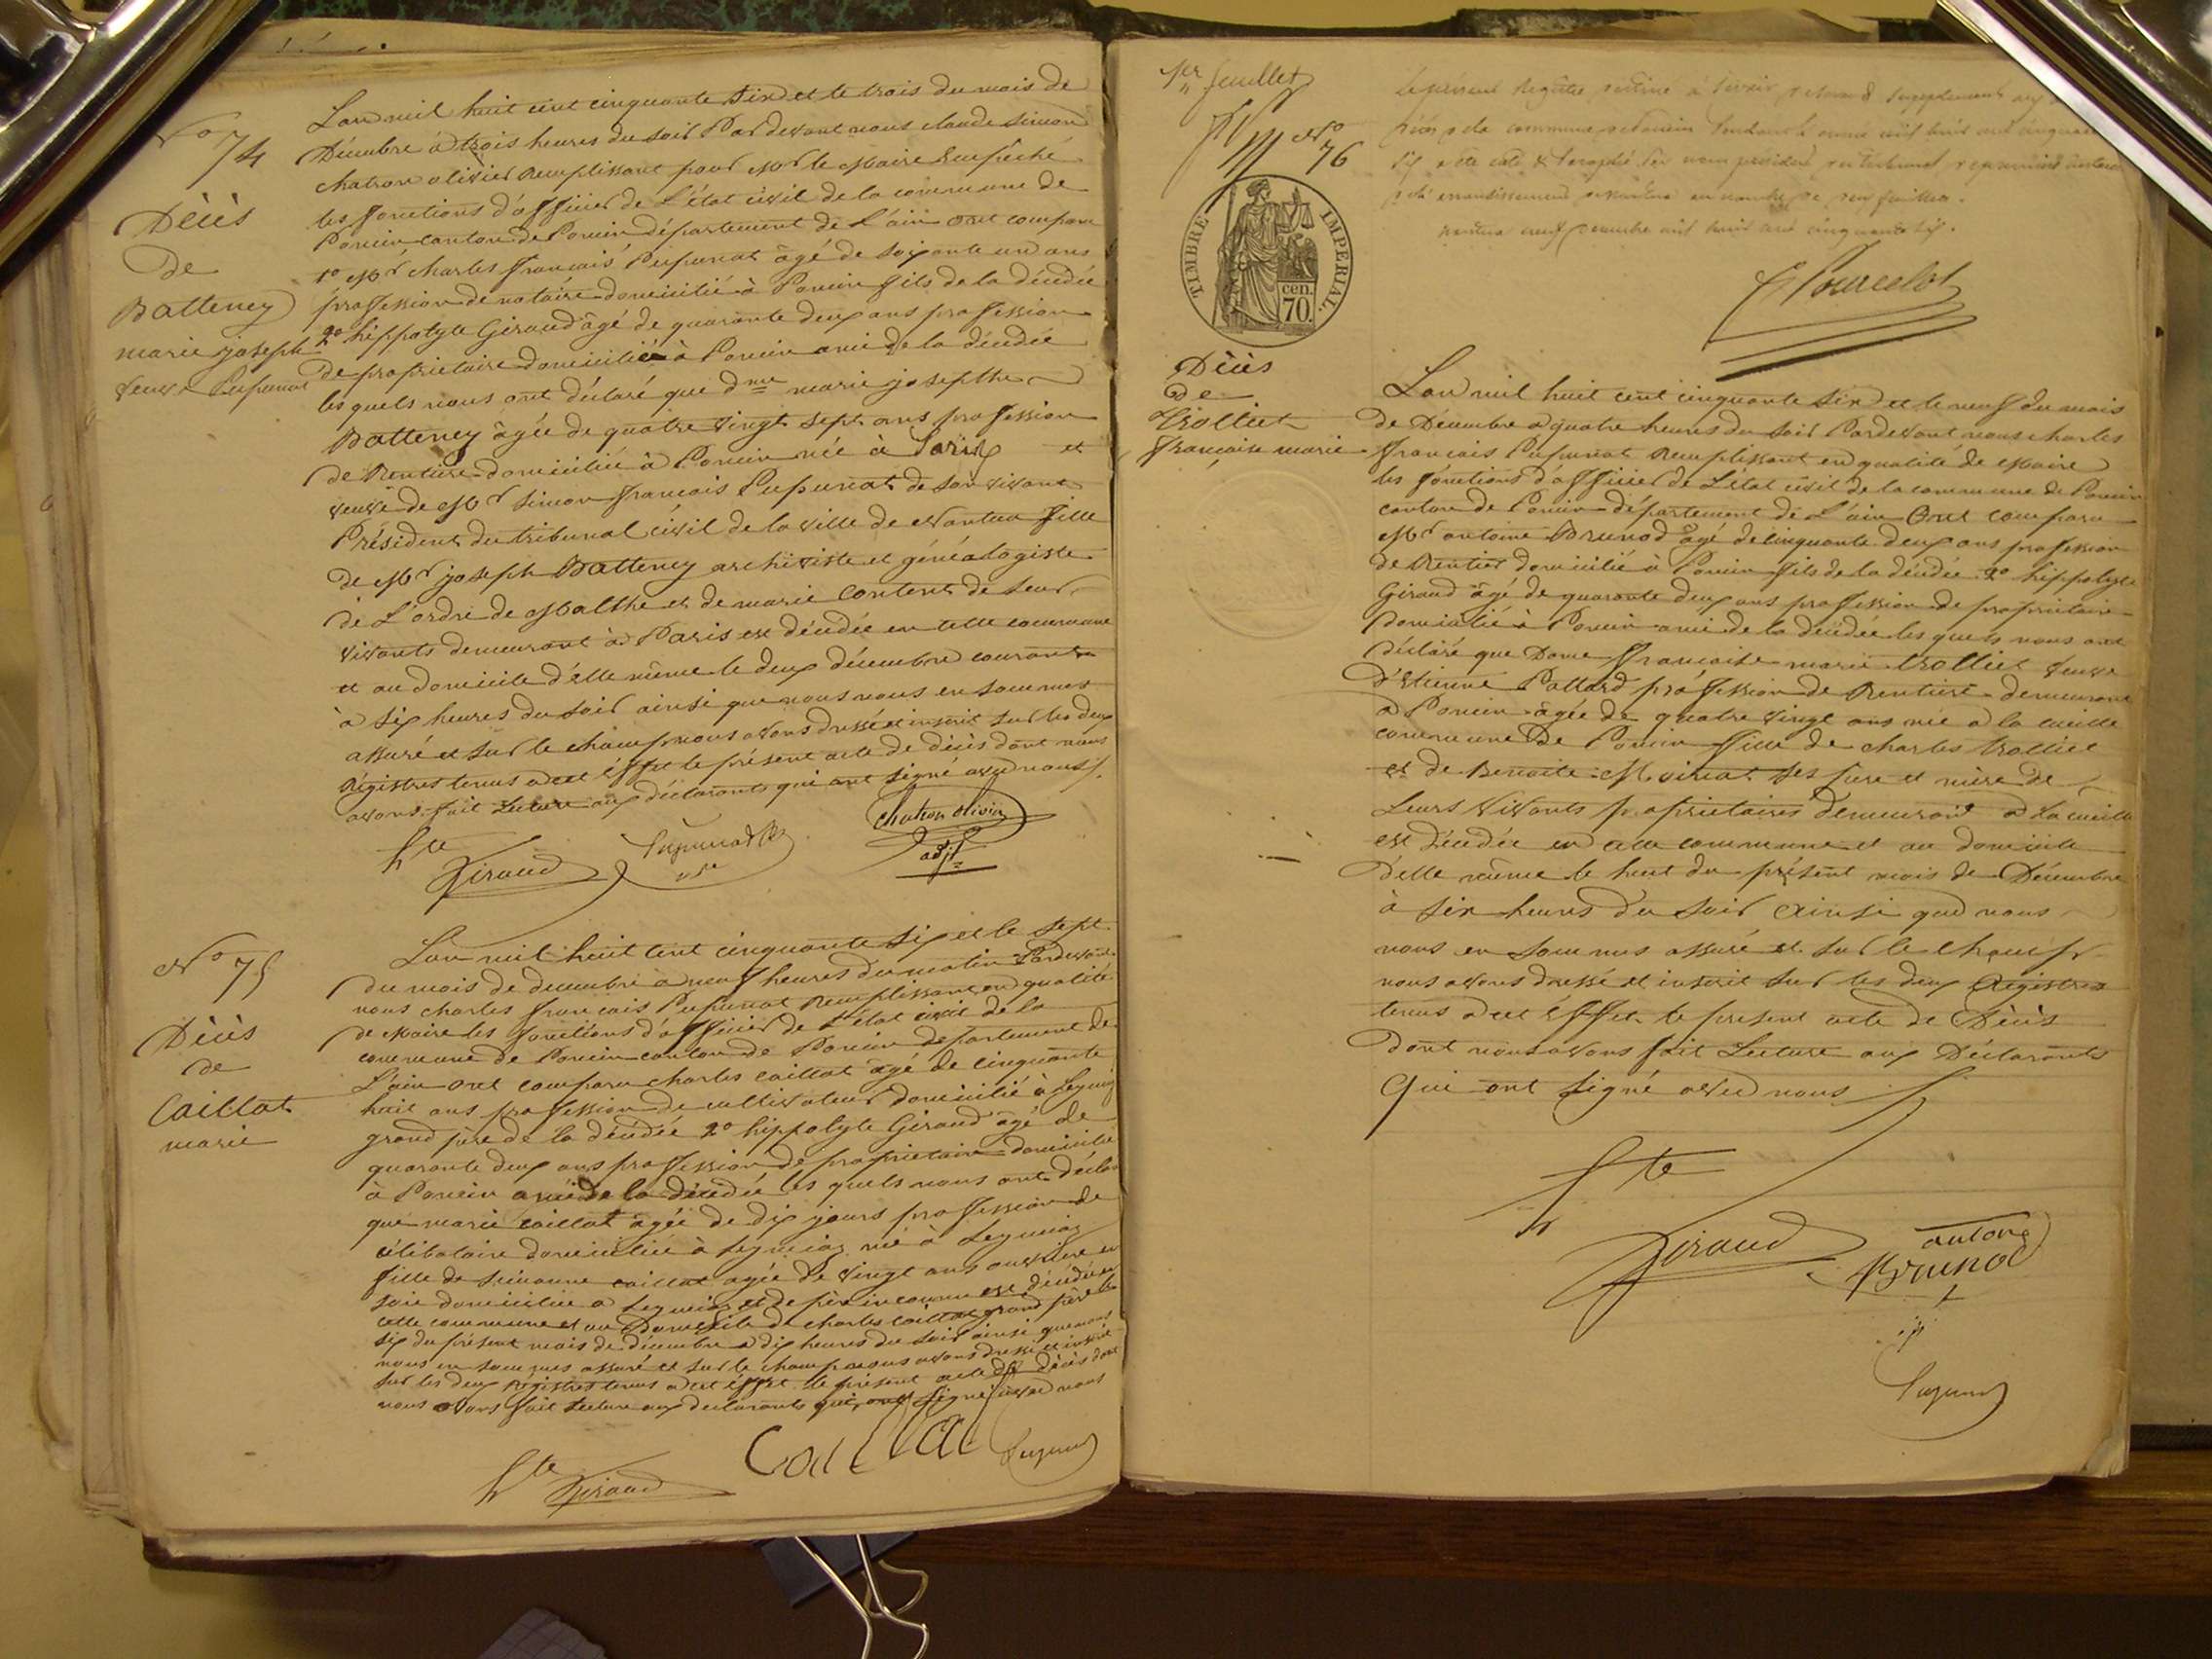 No 74
Décès
de
Batteney
marie joseph
veuve Pupunat
L'an mil huit cent cinquante Six et le trois du mois de
Décembre à trois heures du soir Par devant nous claude Simon
chatron olivier Remplissant pour Mr le Maire Empêché
les fonctions d'officier de L'état civil de la commune de
Poncin canton de Poncin département de L'ain ont comparu
1o Mr charles français Pupunat âgé de soixante un ans
profession de notaire domicilié à Poncin fils de la décédée
2o hippolyte Giraud âgé de quarante deux ans profession
de propriétaire domicilié à Poncin ami de la décédée
les quels nous ont déclaré que dme marie josepthe
Batteney âgée de quatre vingt sept ans profession
de Rentière domiciliée à Poncin née à Paris et
veuve de Mr Simon français Pupunat de son vivant
Président du tribunal civil de la ville de Nantua fille
de Mr joseph Batteney archiviste et généalogiste
de L'ordre de Malthe et de marie Content de leur
vivants demeurant à Paris est décédée en cette commune
et au domicile d'elle même le deux décembre courant
à six heures du soir ainsi que nous nous en sommes
assuré et sur le champ nous avons dressé et inscrit sur les deux
Régistres tenus à cet éffet le présent acte de décès dont nous
avons fait Lecture aux déclarants qui ont signé avec nous
hte Giraud
Pupunat
chatron olivier
adjt
No 75
Décès
de
Caillat
marie
L'an mil huit cent cinquante six et le sept
du mois de decembre à neuf heures du matin Pardevant
nous charles français Pupunat Remplissant en qualité
de Maire les fonctions d'officier de L'état civil de la
commune de Poncin canton de Poncin departement de
L'ain ont comparu charles caillat âgé de cinquante
huit ans profession de cultivateur domicilié à Leymiaz
grand père de la décédée 2o hippolyte Giraud âgé de
quarante deux ans profession de propriétaire domicilié
à Poncin ami de la décédée les quels nous ont décla
que marie caillat âgée de dix jours profession de
célibataire domiciliée à Leymiaz née à Leymiaz
fille de Simonne caillat agée de vingt ans ouvrière en
soie domiciliée à Leymiaz et de père inconnu est décédée en
cette commune et au Domicile de charles caillat grand père le
six du présent mois de décembre à dix heures du soir ainsi que nous
nous en sommes assuré et sur le champ nous avons dressé et inscrit
sur les deux Régistres tenus à cet éffet le présent acte de décès dont
nous avons fait Lecture aux déclarants qui ont signé avec nous
hte Giraud
Caillat
Pupunat
1er feuillet
No
76
TIMBRE IMPERIAL.
cen.
70.
Décès
de
Trolliet
françoise marie
Le présent Registre destiné à servir
commune de Poncin pendant l'année mil huit cent cinquante
six a été coté & paraphé par nous président du tribunal de première instance
de l'arrondissement de Nantua
Nantua neuf décembre mil huit cent cinquante six.
Pourcelot
L'an mil huit cent cinquante Six et le neuf du mois
de Décembre à quatre heures du soir Pardevant nous charles
français Pupunat Remplissant en qualité de Maire
les fonctions d'officier de L'état civil de la commune de Poncin
canton de Poncin département de L'ain Ont comparu
Mr antoine Brunod âgé de cinquante deux ans profession
de Rentier domicilié à Poncin fils de la décédée 2o hippolyte
Giraud âgé de quarante deux ans profession de propriétaire
domicilié à Poncin ami de la décédée les quels nous ont
déclaré que Dame françoise marie trolliet veuve
d'Etienne Pollard profession de Rentière demeurant
à Poncin âgée de quatre vingt ans née à la cueille
commune De Poncin fille de charles trolliet
et de Benoite Moirat ses père et mère de
Leurs vivants propriétaires demeurant à La cueille
est décédée en cette commune et au domicile
d'elle même le huit du présent mois de Décembre
à six heures du soir ainsi que nous
nous en sommes assuré et sur le champ
nous avons dressé et inscrit sur les deux Régistres
tenus à cet éffet le présent acte de Décès
dont nous avons fait Lecture aux Déclarants
Qui ont signé avec nous
hte
Giraud
antone
Brunod
Pupunat